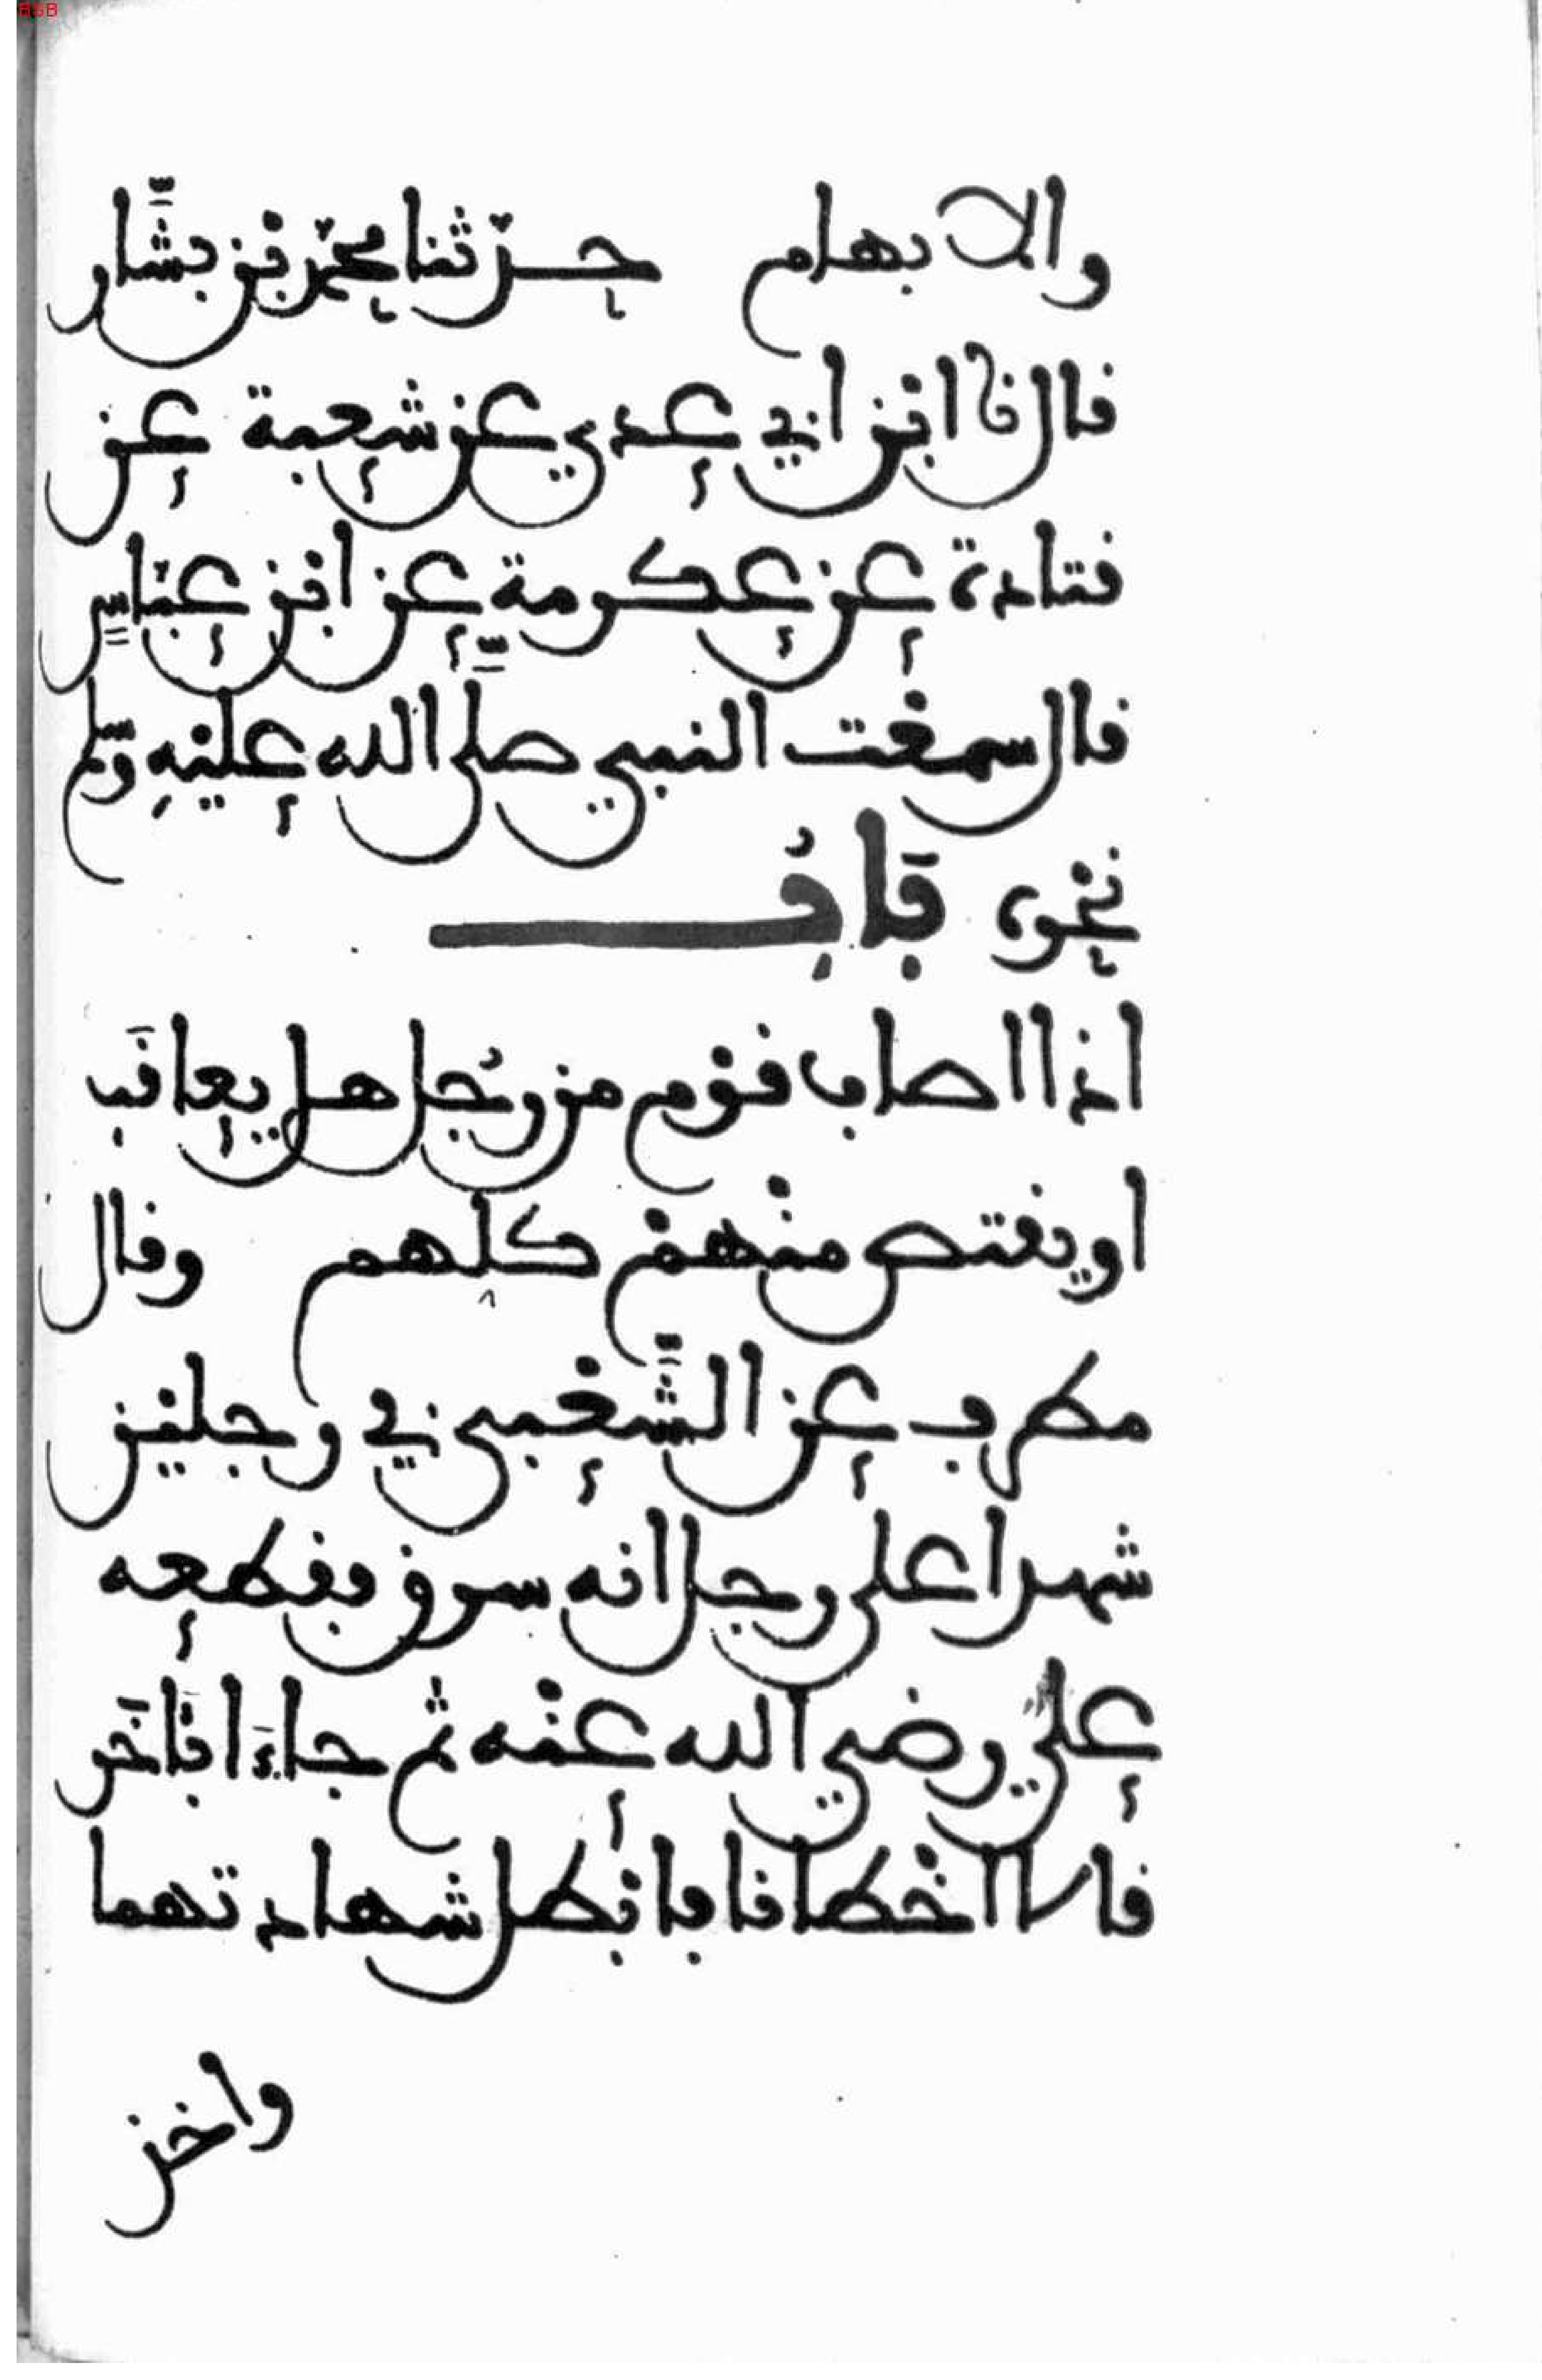 BSB
والابهام حدّثنا محمّد بن بشَّار
قال نا ابن ابي عدي عن شعبة عن
قتادة عن عكرمة عن ابن عبّاسٍ
قال سمعْت النبي صلَّى الله علَيْهِ وسّلم
نحوه بَابُ
اذا اصاب قوْم من رجُل هل يعاقَب
او يقتص منْهمْ كلهم وقال
مطرف عن الشَّعْبي في رجليْن
شهدا على رجل انه سرق فقطعه
علي رضي الله عنْه ثم جاءَا بَآخَر
قالا اخْطانا فابْطل شهادتهما
واخذ